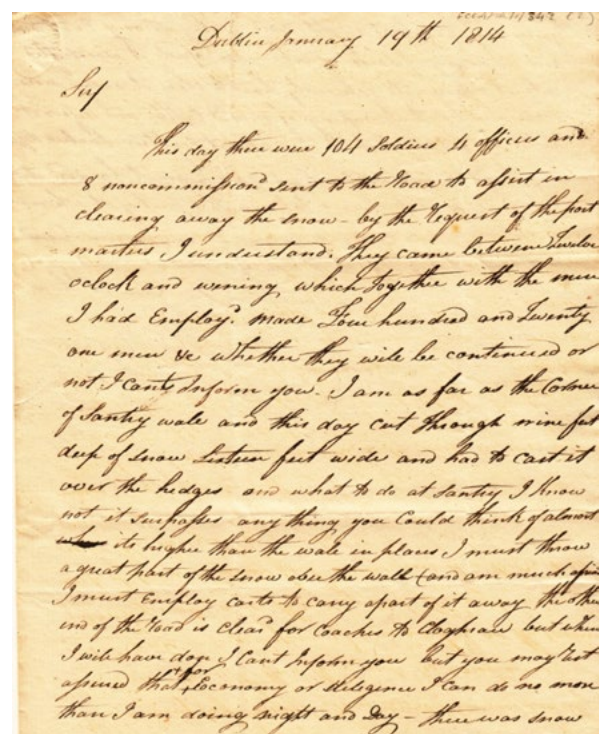 Dublin January 19th 1814
Sir
This day there were 104 Soldiers 4 officers and
8 noncommissiond sent to the Road to assist in
clearing away the snow - by the request of the post
masters I understand. They came between Twelve
oclock and evening which together with the men
I had Employd. made Four hundred and Twenty
one men &c whether they will be continued or
not I cant Inform you. I am as far as the Corner
of Santry wall and this day cut through nine feet
deep of snow Sixteen feet wide and had to cast it
over the hedges and what to do at Santry I know
not it surpasses any thing you Could think of almost
its higher than the wall in places I must throw
a great part of the snow over the wall (and am much afraid
I must Employ carts to carry apart of it away the other
end of the road is cleard for Coaches to Cloghran but when
I will have done I Cant Inform you but you may rest
assured that for Oeconomy or deligence I can do no more
than I am doing night and Day - there was snow